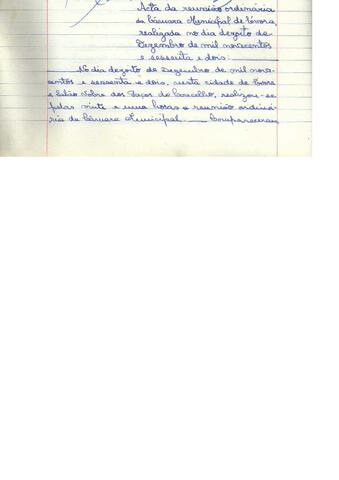 Acta da reunião ordinária
da Câmara Municipal de Évora,
realizada no dia dezoito de
Dezembro de mil novecentos
e sessenta e dois:
No dia dezoito de Dezembro de mil nove-
centos e sessenta e dois, nesta cidade de Évora
e Salão Nobre dos Paços do Concelho, realizou-se
pelas vinte e uma horas a reunião ordiná-
ria da Câmara Municipal. Compareceram